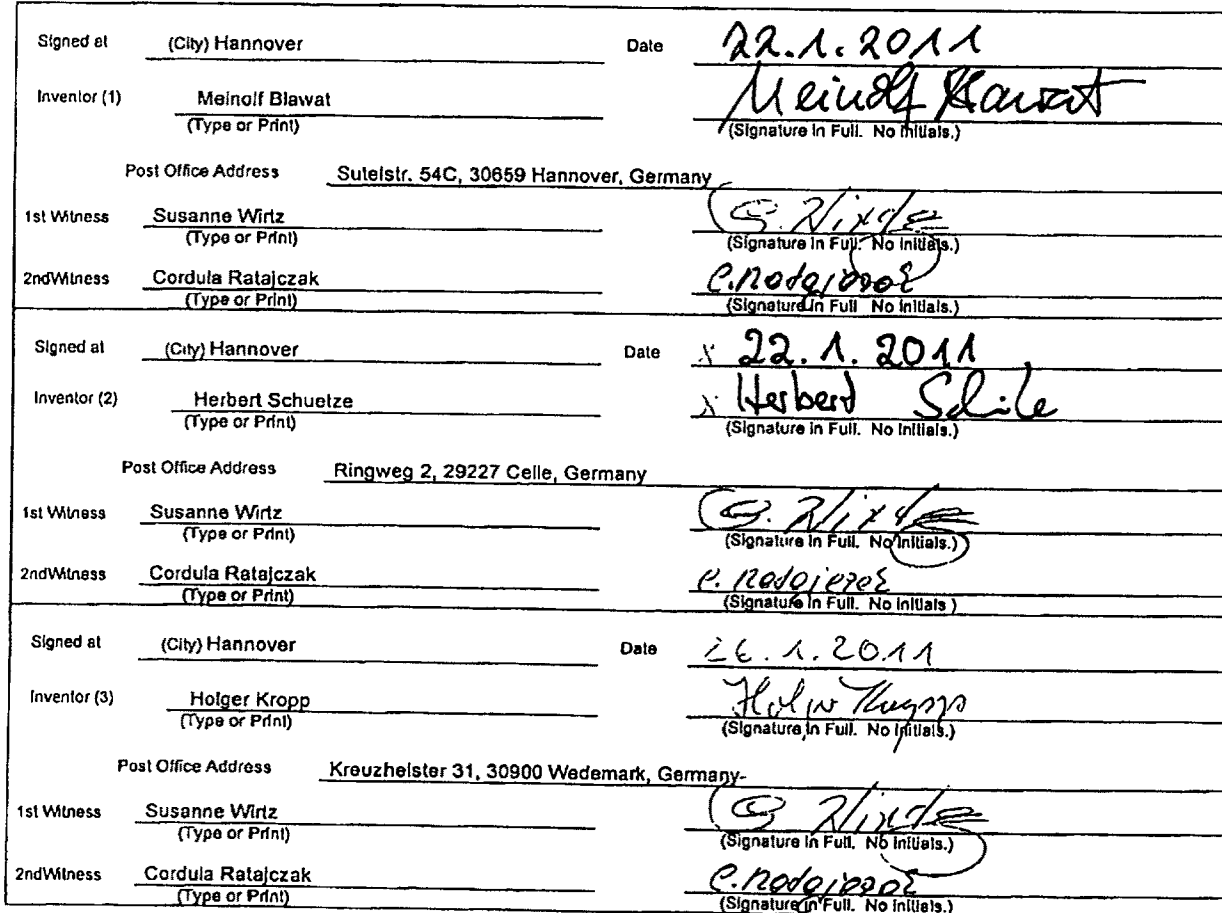 Signed at (City) Hannover Date 22.1.2011
Inventor (1) Meinolf Blawat Meinolf Blawat
(Type or Print) (Signature in Full. No Initials.)
Post Office Address Sutelstr. 54C, 30659 Hannover, Germany
1st Witness Susanne Wirtz
(Type or Print) (Signature in Full. No Initials.)
2ndWitness Cordula Ratajczak C. Ratajczak
(Type or Print) (Signature in Full No Initials.)
Signed at (City) Hannover Date x 22.1.2011
Inventor (2) Herbert Schuetze x Herbert
(Type or Print) (Signature in Full. No Initials.)
Post Office Address Ringweg 2, 29227 Celle, Germany
1st Witness Susanne Wirtz
(Type or Print) (Signature in Full. No Initials.)
2ndWitness Cordula Ratajczak C. Ratajczak
(Type or Print) (Signature in Full. No Initials )
Signed at (City) Hannover Date 26.1.2011
Inventor (3) Holger Kropp Holger Kropp
(Type or Print) (Signature in Full. No Initials.)
Post Office Address Kreuzhelster 31, 30900 Wedemark, Germany-
1st Witness Susanne Wirtz
(Type or Print) (Signature in Full. No Initials.)
2ndWitness Cordula Ratajczak C. Ratajczak
(Type or Print) (Signature in Full. No Initials.)